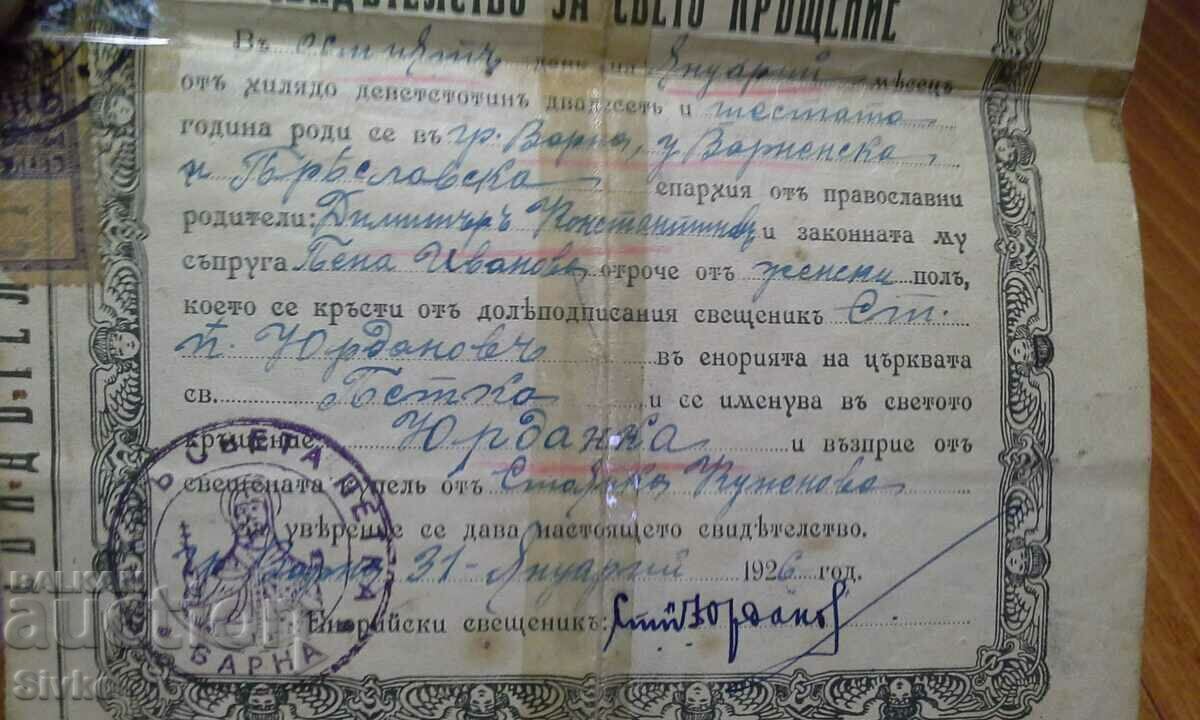 СВИДѢТЕЛСТВО ЗА СВЕТО КРЪЩЕНИЕ
Въ осми день на Януарий мѣсецъ
отъ хилядо деветстотинъ двадесеть и шестата
година роди се въ гр. Варна, у Варненска
и Прѣславска епархия отъ православни
родители: Димитъръ Константиновъ и законната му
съпруга Пена Иванова отроче отъ женски полъ,
което се кръсти отъ долѣподписания свещеникъ Ст.
п. Юрдановъ въ енорията на църквата
св. Петка и се именува въ светото
кръщение Юрданка и възприе отъ
свещената купель отъ Стоянка
За увѣрение се дава настоящето свидѣтелство.
гр. Варна 31 Януарий 1926 год.
Енорийски свещеникъ: Ст п Юрдановъ
СВЕТА ПЕТКА
ВАРНА
BALKAN
auction
Sivko